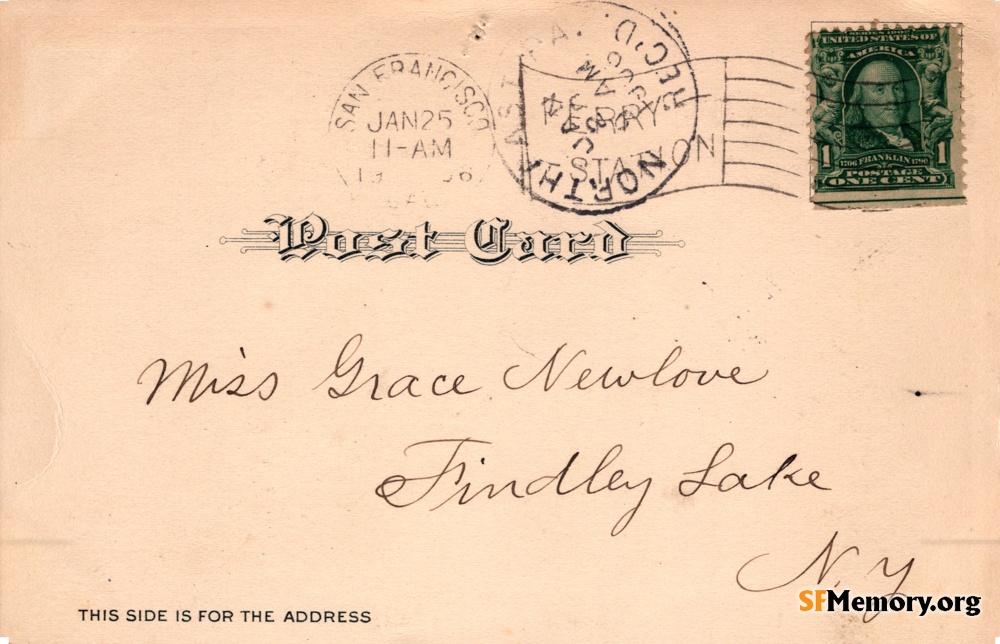 SAN FRANCISCO
JAN 25
11-AM
FERRY
STATION
NORTH EAST, PA.
REC'D.
JAN
30
8 AM
1906
SERIES 1902
UNITED STATES OF
AMERICA
1 1706 FRANKLIN 1790 1
POSTAGE
ONE CENT
Post Card
Miss Grace Newlove
Findley Lake
N.Y
THIS SIDE IS FOR THE ADDRESS
SFMemory.org